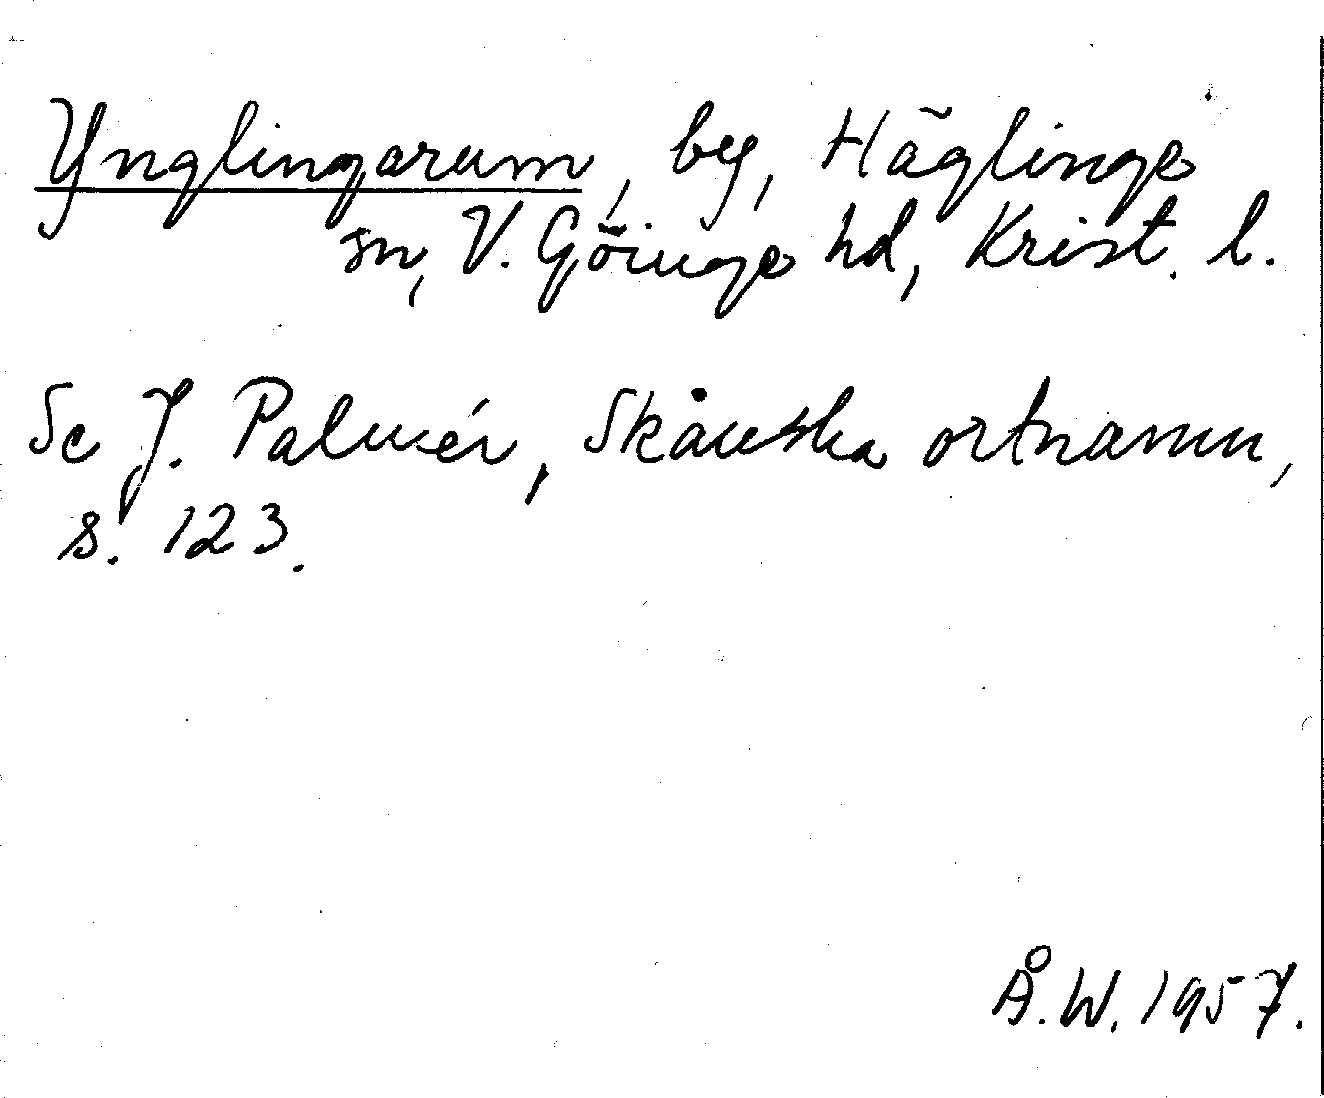 Ynglingarum, by, Häglinge
sn, V. Göinge hd, Krist. l.
Se J. Palmér, Skånska ortnamn,
s. 123.
Å.W. 1957.